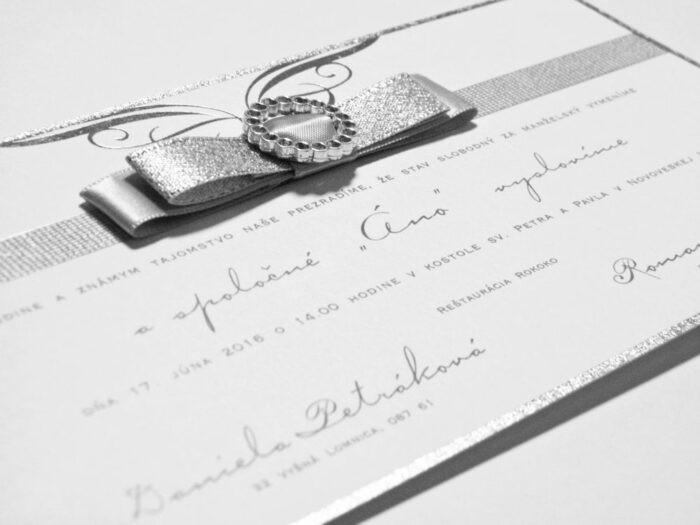 RODINE A ZNÁMYM TAJOMSTVO NAŠE PREZRADÍME, ŽE STAV SLOBODNÝ ZA MANŽELSKÝ VYMENÍME
a spoločné „Áno” vyslovíme
DŇA 17. JÚNA 2016 O 14.00 HODINE V KOSTOLE SV. PETRA A PAVLA V NOVOVESKEJ
REŠTAURÁCIA ROKOKO
Daniela Petráková
Roman
32 VYŠNÁ LOMNICA, 087 61